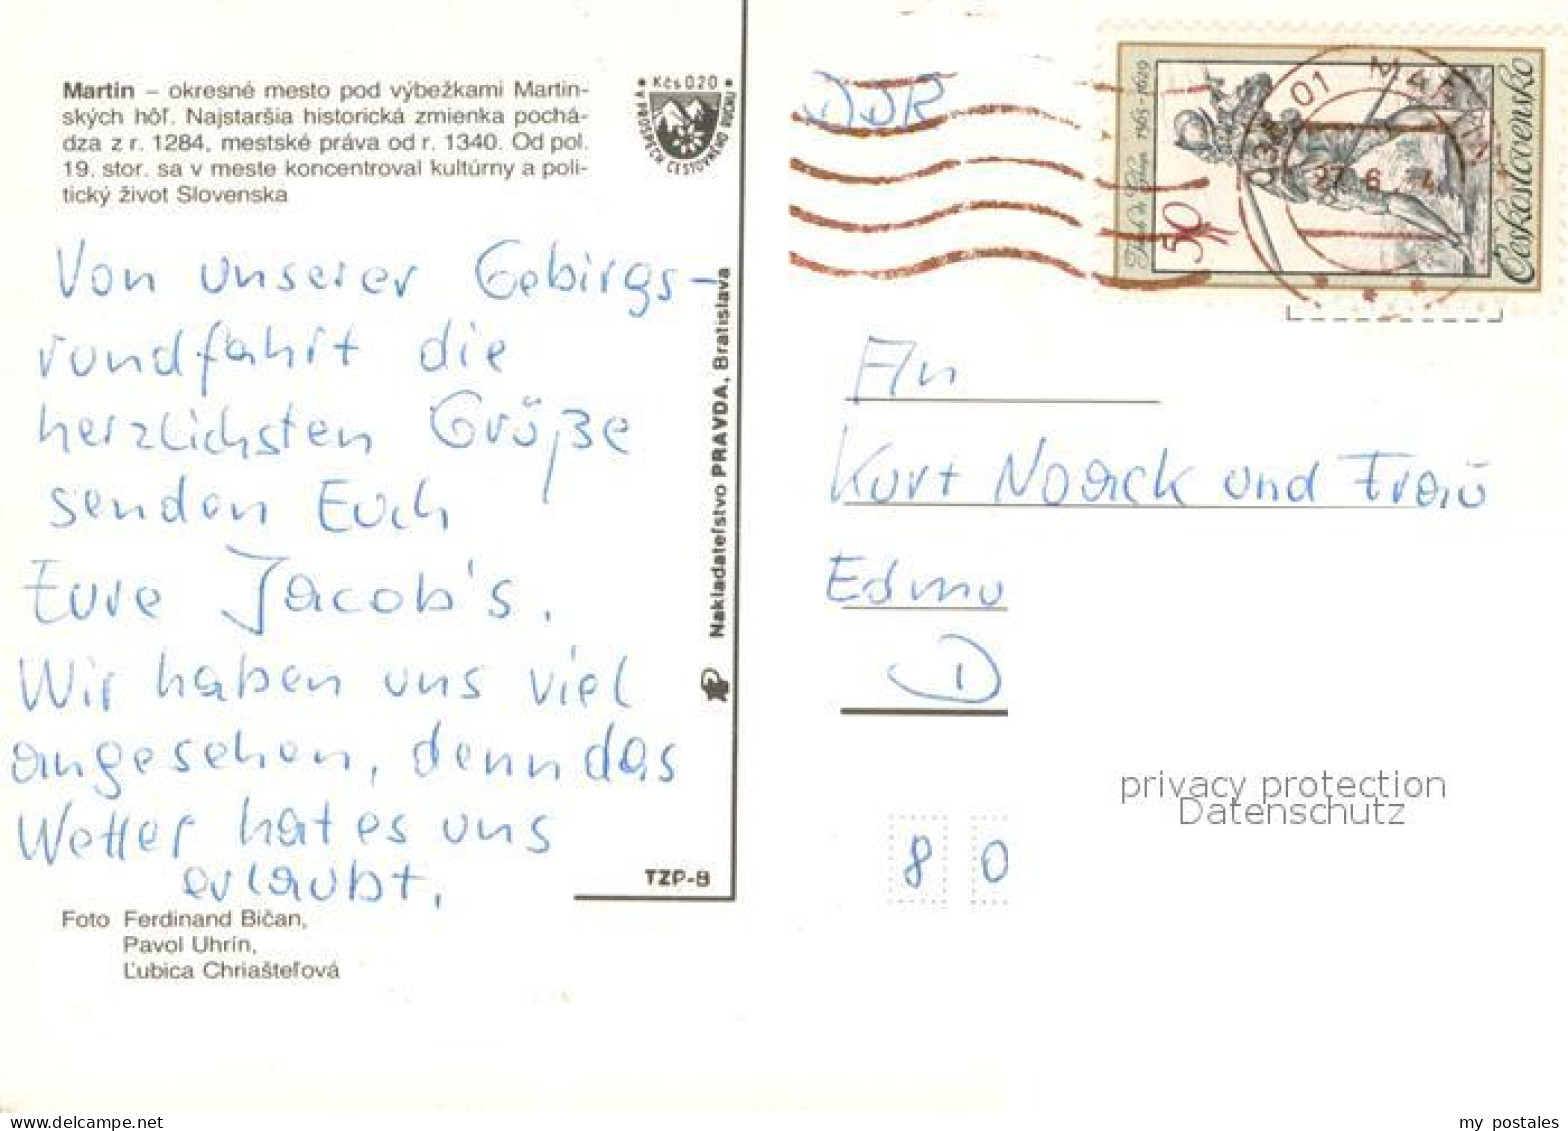 Martin – okresné mesto pod výbežkami Martin-
ských hôľ. Najstaršia historická zmienka pochá-
dza z r. 1284, mestské práva od r. 1340. Od pol.
19. stor. sa v meste koncentroval kultúrny a poli-
tický život Slovenska
Kčs 0,20
V PROSPECH CESTOVNÉHO RUCHU
Von unserer Gebirgs-
rundfahrt die
herzlichsten Grüße
senden Euch
Eure Jacob's.
Wir haben uns viel
angesehen, denn das
Wetter hat es uns
erlaubt.
TZP-8
Foto Ferdinand Bičan,
Pavol Uhrín,
Ľubica Chriašteľová
Nakladateľstvo PRAVDA, Bratislava
DDR
01 MARTIN
27.6
1565-1629
50
Československo
An
Kurt Noack und Frau
Edmu
D
80
privacy protection
Datenschutz
www.delcampe.net
my_postales